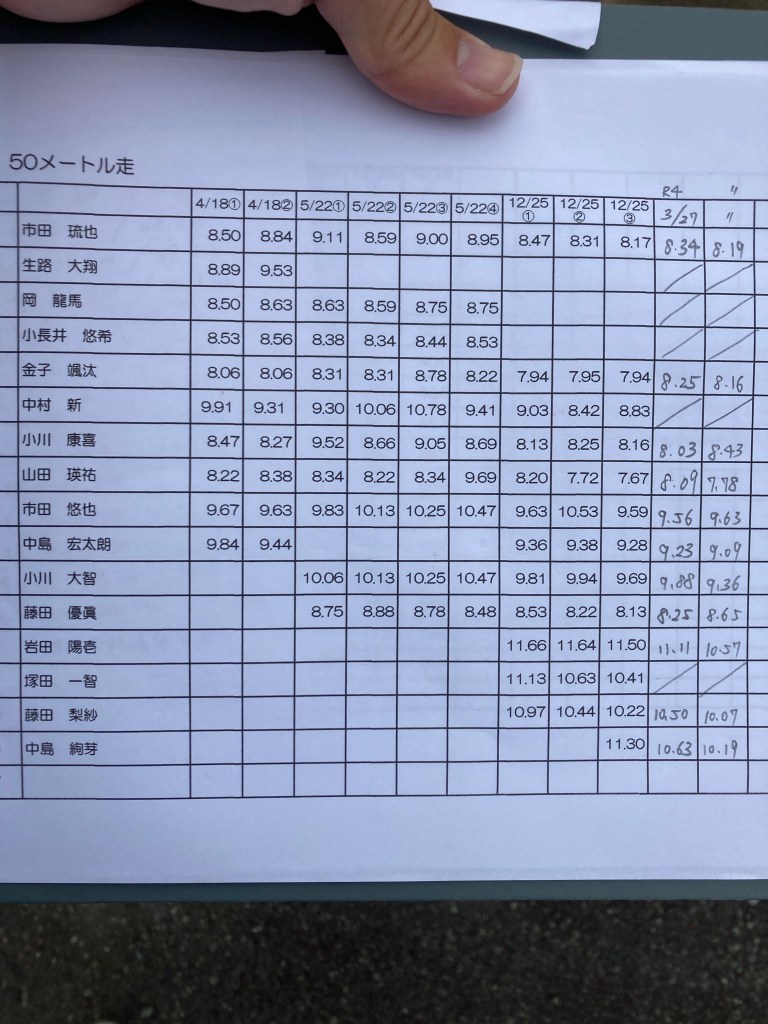 50メートル走
R4 〃
4/18① 4/18② 5/22① 5/22② 5/22③ 5/22④ 12/25① 12/25② 12/25③ 3/27 〃
市田 琉也 8.50 8.84 9.11 8.59 9.00 8.95 8.47 8.31 8.17 8.34 8.19
生路 大翔 8.89 9.53
岡 龍馬 8.50 8.63 8.63 8.59 8.75 8.75
小長井 悠希 8.53 8.56 8.38 8.34 8.44 8.53
金子 颯汰 8.06 8.06 8.31 8.31 8.78 8.22 7.94 7.95 7.94 8.25 8.16
中村 新 9.91 9.31 9.30 10.06 10.78 9.41 9.03 8.42 8.83
小川 康喜 8.47 8.27 9.52 8.66 9.05 8.69 8.13 8.25 8.16 8.03 8.43
山田 瑛祐 8.22 8.38 8.34 8.22 8.34 9.69 8.20 7.72 7.67 8.09 7.78
市田 悠也 9.67 9.63 9.83 10.13 10.25 10.47 9.63 10.53 9.59 9.56 9.63
中島 宏太朗 9.84 9.44 9.36 9.38 9.28 9.23 9.09
小川 大智 10.06 10.13 10.25 10.47 9.81 9.94 9.69 9.88 9.36
藤田 優眞 8.75 8.88 8.78 8.48 8.53 8.22 8.13 8.25 8.65
岩田 陽壱 11.66 11.64 11.50 11.11 10.57
塚田 一智 11.13 10.63 10.41
藤田 梨紗 10.97 10.44 10.22 10.50 10.07
中島 絢芽 11.30 10.63 10.19